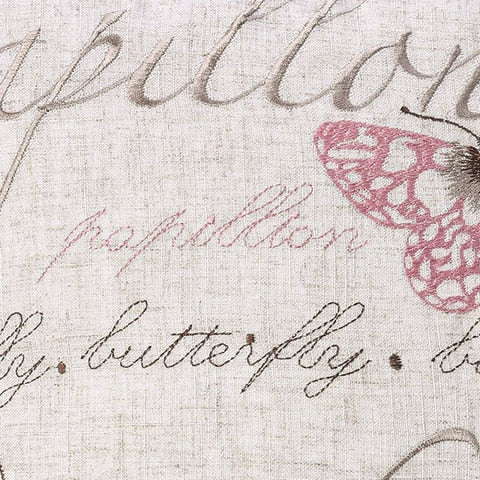 apillon
papillion
fly • butterfly • bu